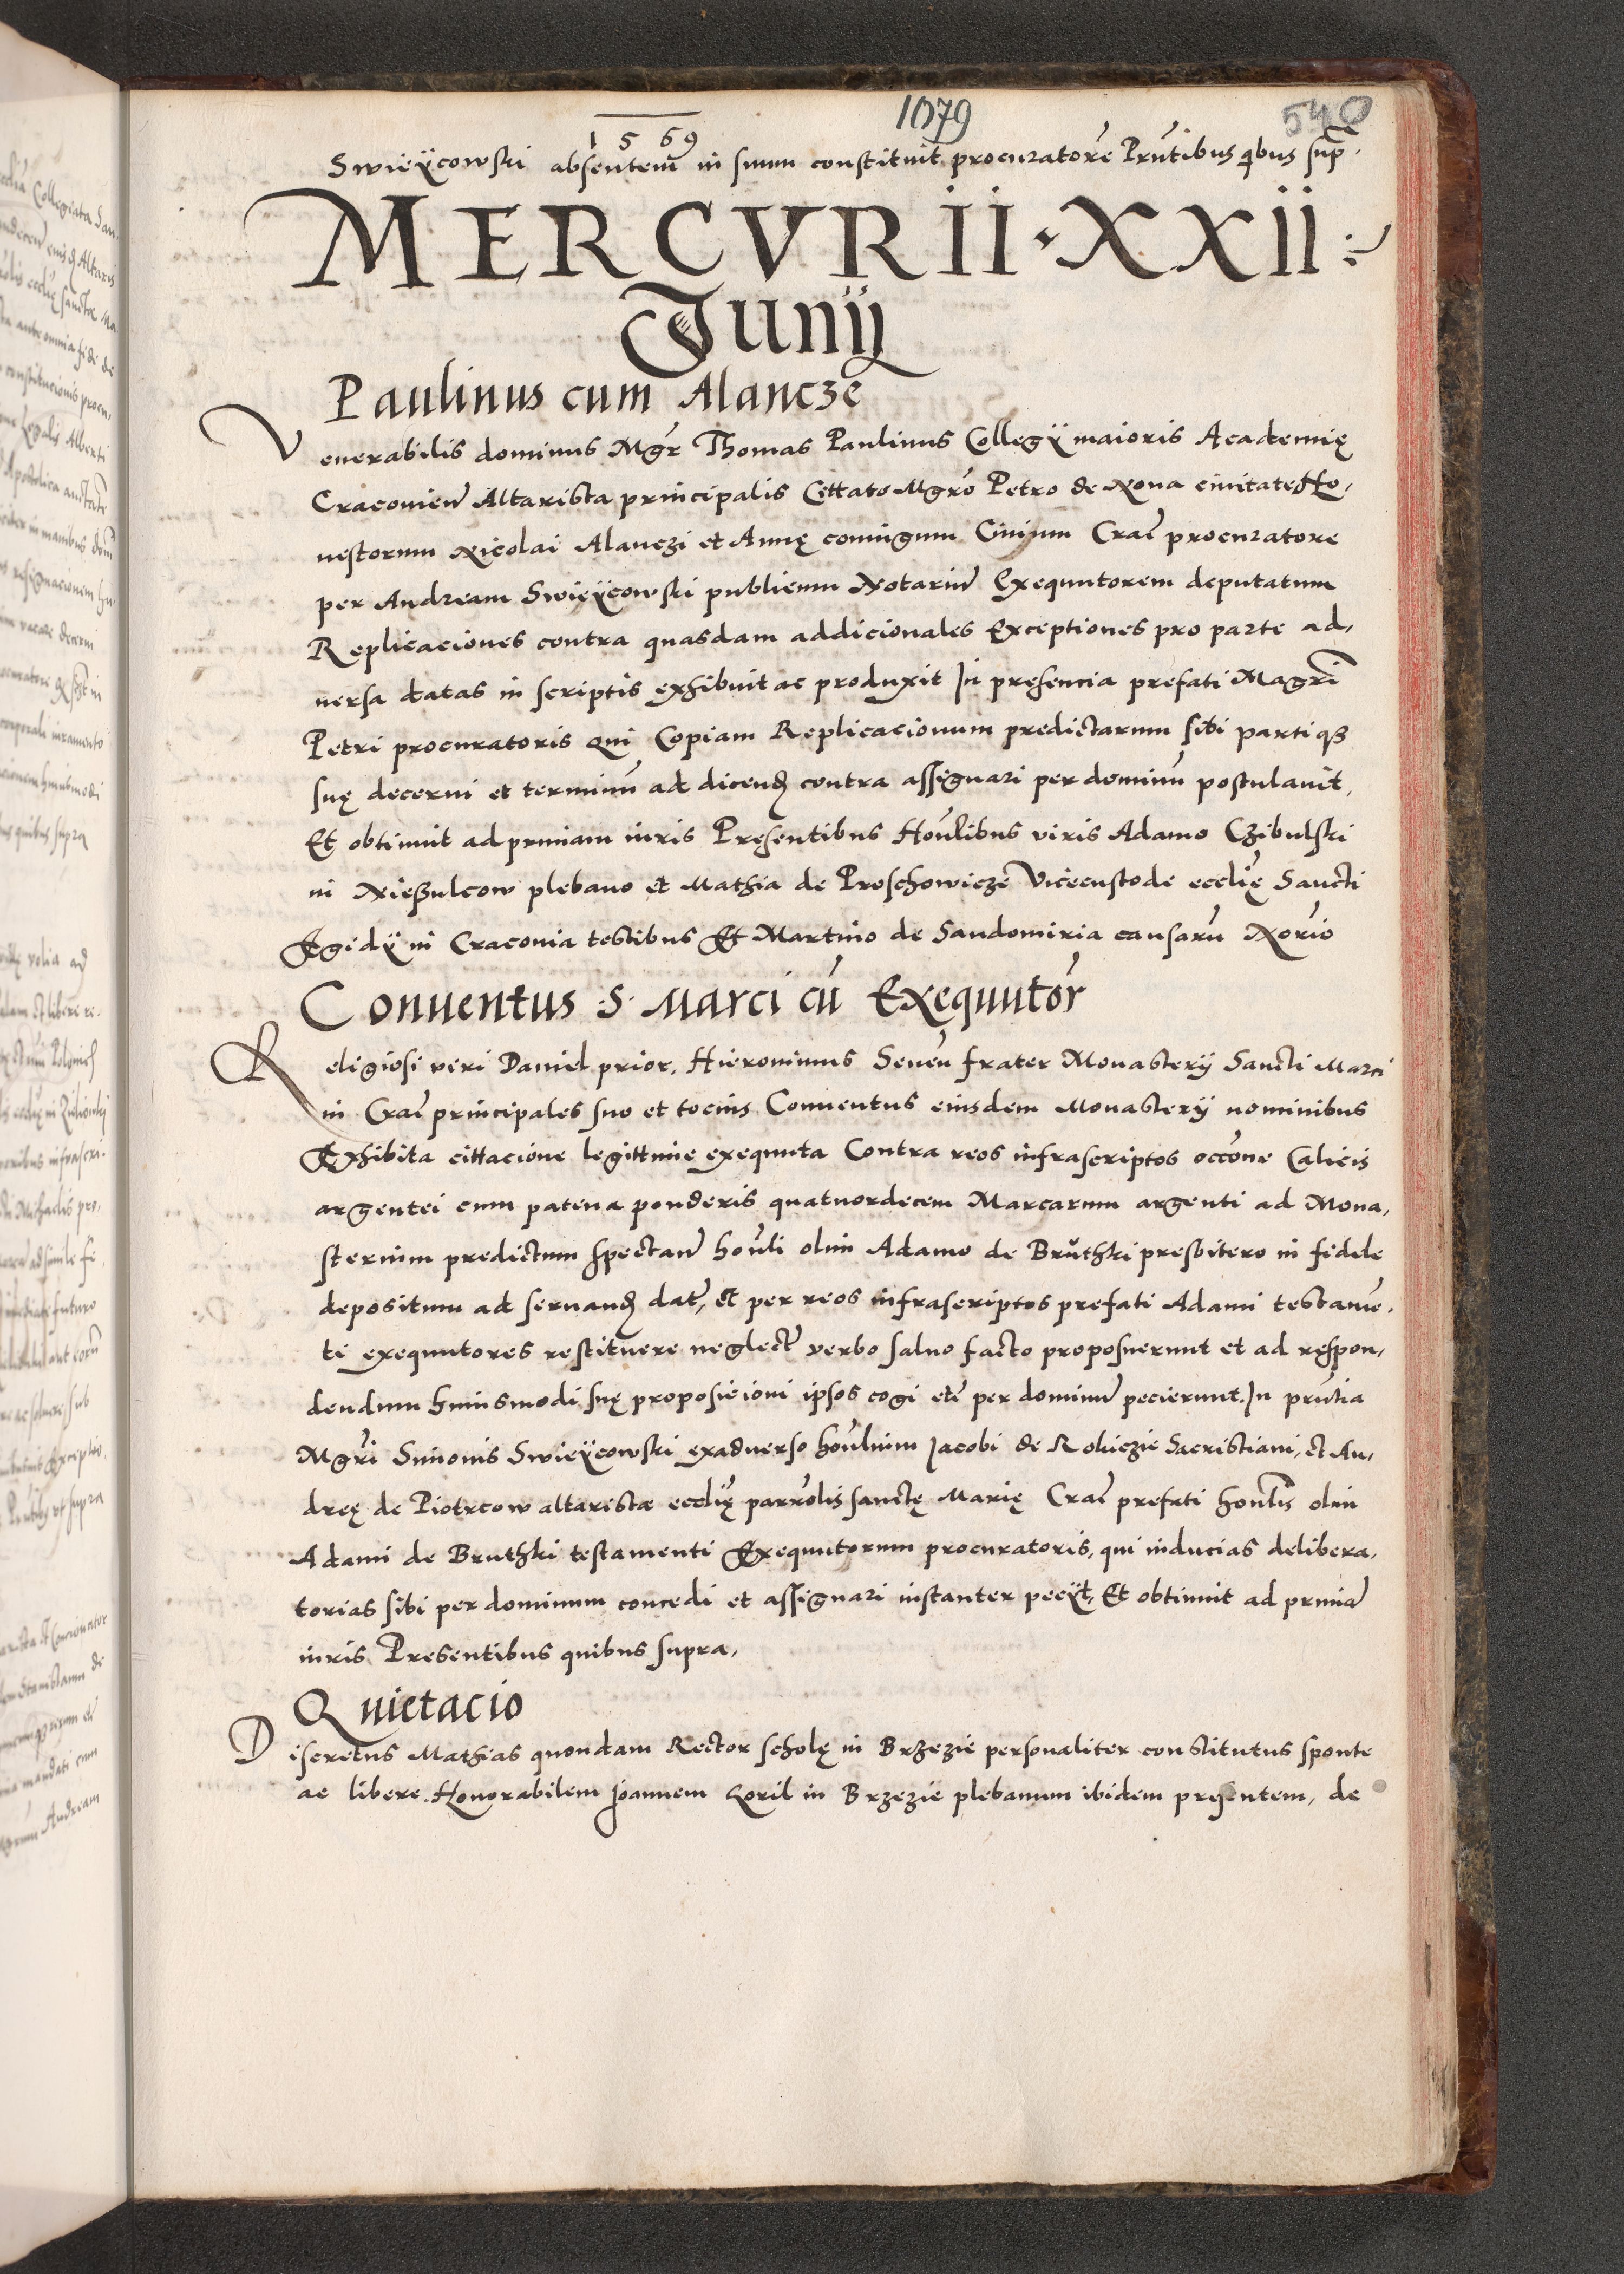 1079
540
1569
Swieÿcowski absentem in suum constituit procuratorē Prn̄tibus qibus sup̄.
MERCVRII · XXII
Junij
Paulinus cum Alancze
Venerabilis dominus Mgr̄ Thomas Paulinus Collegÿ maioris Academię
Cracovien̄ Altarista principalis Cittato Mgrō Petro de Nova civitate Ho,
nestorum Nicolai Alanczi et Annę coniugum Civium Crac̄ procuratore
per Andream Swieÿcowski publicum Notariū Exequutorem deputatum
Replicaciones contra quasdam addicionales Exceptiones pro parte ad,
versa datas in scriptis exhibuit ac produxit In presencia prefati Magrī
Petri procuratoris qui Copiam Replicacionum predictarum sibi partiqȝ
suę decerni et terminū ad dicend contra assignari per dominū postulavit,
Et obtinuit ad primam iuris Pręsentibus Honlibus viris Adamo Czibulski
in Nieszulcow plebano et Mathia de Proschowicze Vicecustode ecclię Sancti
Egidÿ in Cracovia testibus Et Martino de Sandomiria causarū Norio
Conventus S. Marci cū Exequutor̄
Religiosi viri Daniel prior, Hieronimus Seneū frater Monasterij Sancti Marci
in Crac̄ principales suo et tocius Conventus eiusdem Monasterij nominibus
Exhibita cittacione legittime exequuta Contra reos infrascriptos occōne Calicis
argentei cum patena ponderis quatuordecem Marcarum argenti ad Mona,
sterium predictum spectan̄ honli olim Adamo de Brŭthki presbitero in fidele
depositum ad servand dat̄, et per reos infrascriptos prefati Adami testamē,
ti exequutores restituere neglect̄ verbo salvo facto proposuerunt et ad respon,
dendum huiusmodi suę proposicioni ipsos cogi etc̄ per dominū pecierunt. In prn̄tia
Mgrī Simonis Swieÿcowski exadverso honlium Jacobi de Rokiczie Sacristiani, et An,
dreę de Piotrcow altaristæ ecclię parrolis sanctę Marię Crac̄ prefati honlis olim
Adami de Bruthki testamenti Exequutorum procuratoris, qui inducias delibera,
torias sibi per dominum concedi et assignari instanter peciÿt, Et obtinuit ad primā
iuris Presentibus quibus supra,
Quietacio
Discretus Mathias quondam Rector scholę in Brzezie personaliter constitutus sponte
ac libere Honorabilem Joannem Koril in Brzezie plebanum ibidem presentem, de